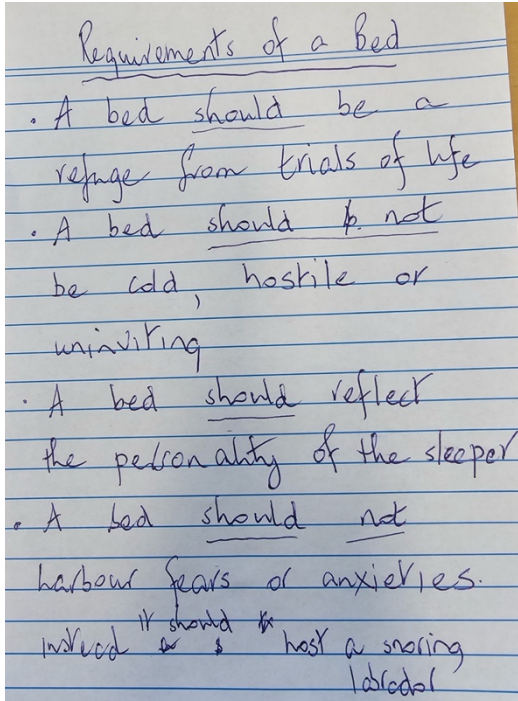 Requirements of a Bed
. A bed should be a
refuge from trials of life
. A bed should not
be cold, hostile or
uninviting
. A bed should reflect
the personality of the sleeper
. A bed should not
harbour fears or anxieties.
instead it should host a snoring
labrador